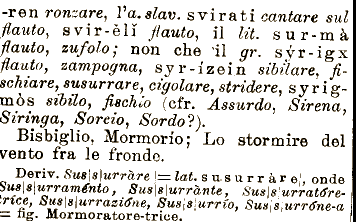 -ren ronzare, l'a. slav. svirati cantare sul
flauto, svir-èli flauto, il lit. sur-mà
flauto, zufolo; non che il gr. sýr-igx
flauto, zampogna, syr-ízein sibilare, fi-
schiare, susurrare, cigolare, stridere, syrig-
mòs sibilo, fischio (cfr. Assurdo, Sirena,
Siringa, Sorcio, Sordo?).
Bisbiglio, Mormorio; Lo stormire del
vento fra le fronde.
Deriv. Sus|s|urràre |= lat. susurràre|, onde
Sus|s|urraménto, Sus|s|urrànte, Sus|s|urratóre-
tríce, Sus|s|urrazióne, Sus|s|urrío, Sus|s|urróne-a
= fig. Mormoratore-trice.